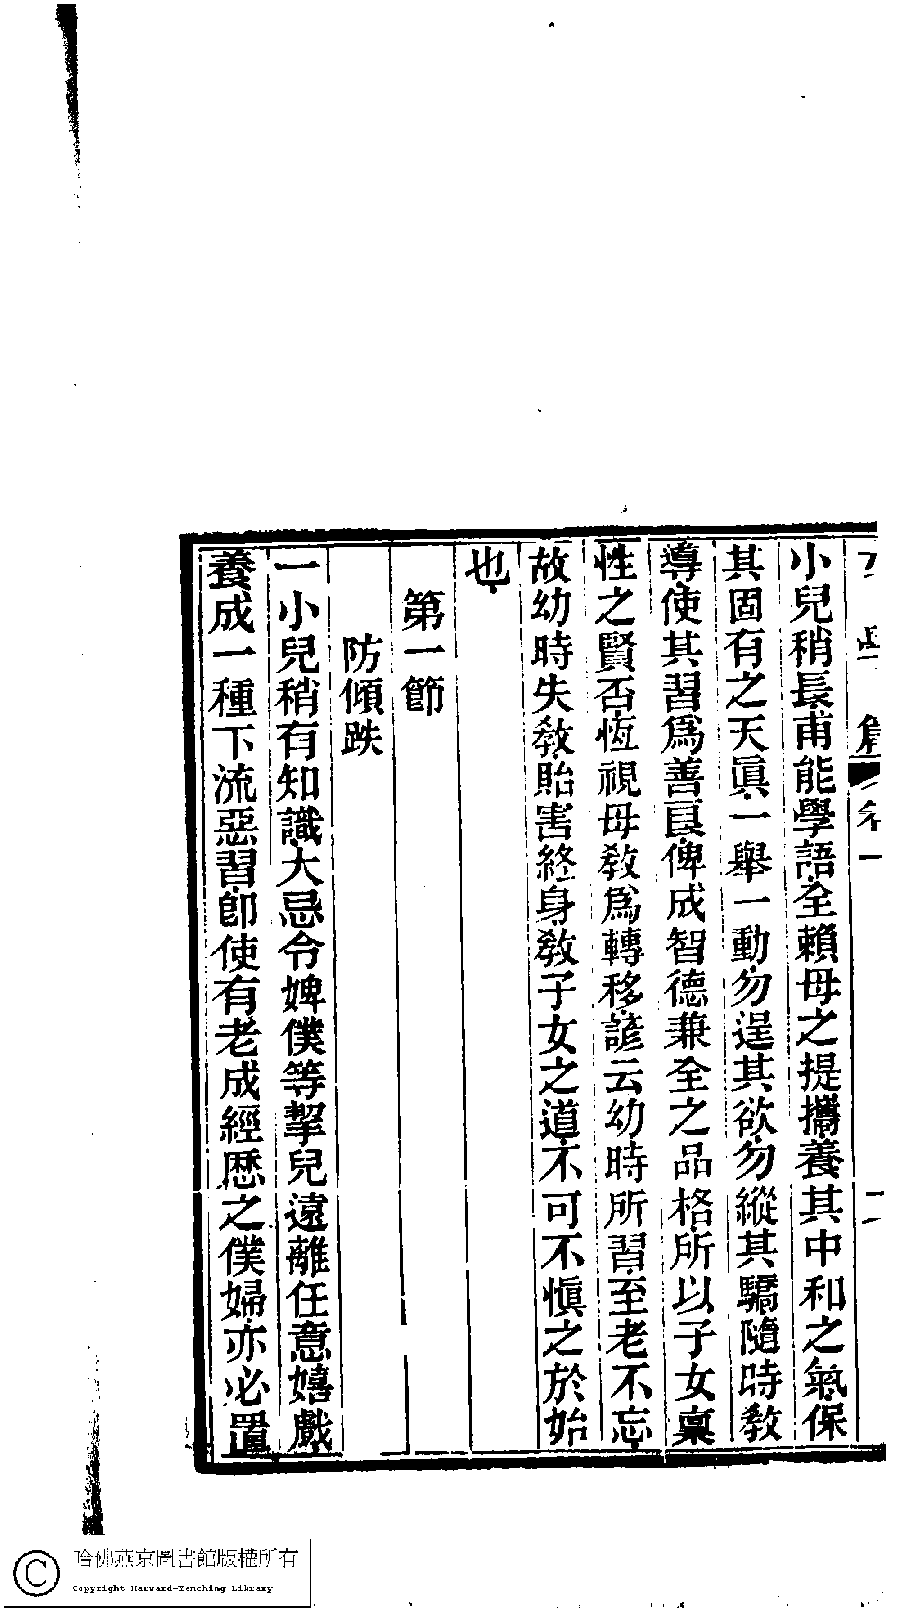 小兒稍長甫能學語全賴母之提攜養其中和之氣保
其固有之天眞一舉一動勿逞其欲勿縱其驕隨時敎
導使其習爲善良俾成智德兼全之品格所以子女稟
性之賢否恆視母敎爲轉移諺云幼時所習至老不忘
故幼時失敎貽害終身敎子女之道不可不愼之於始
也
第一節
防傾跌
一小兒稍有知識大忌令婢僕等挈兒遠離任意嬉戲
養成一種下流惡習卽使有老成經歷之僕婦亦必置
哈佛燕京圖書館版權所有
Copyright Harvard-Yenching Library